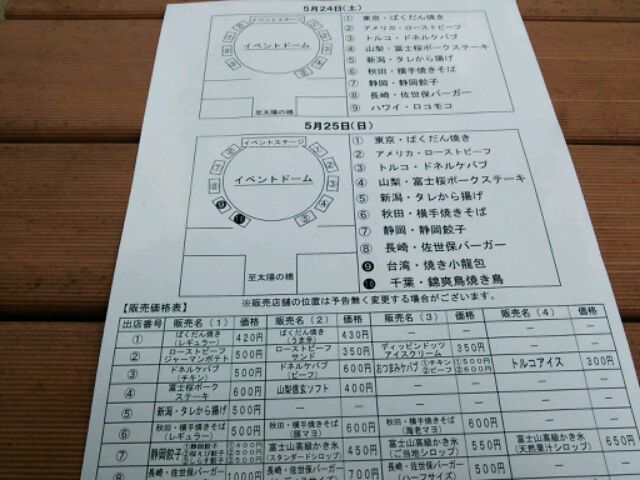 5月24日(土)
イベントステージ
イベントドーム
至太陽の橋
① 東京・ばくだん焼き
② アメリカ・ローストビーフ
③ トルコ・ドネルケバブ
④ 山梨・富士桜ポークステーキ
⑤ 新潟・タレから揚げ
⑥ 秋田・横手焼きそば
⑦ 静岡・静岡餃子
⑧ 長崎・佐世保バーガー
⑨ ハワイ・ロコモコ
5月25日(日)
イベントステージ
イベントドーム
至太陽の橋
① 東京・ばくだん焼き
② アメリカ・ローストビーフ
③ トルコ・ドネルケバブ
④ 山梨・富士桜ポークステーキ
⑤ 新潟・タレから揚げ
⑥ 秋田・横手焼きそば
⑦ 静岡・静岡餃子
⑧ 長崎・佐世保バーガー
❾ 台湾・焼き小龍包
❿ 千葉・錦爽鳥焼き鳥
※販売店舗の位置は予告無く変更する場合がございます。
【販売価格表】
出店番号 販売名(1) 価格 販売名(2) 価格 販売名(3) 価格 販売名(4) 価格
① ばくだん焼き(レギュラー) 420円 ばくだん焼き(うま辛) 430円 － － － －
② ローストビーフジャーマンポテト 500円 ローストビーフサンド 350円 ディッピンドッツアイスクリーム 350円 － －
③ ドネルケバブ(チキン) 500円 ドネルケバブ(ビーフ) 600円 おつまみケバブ ①チキン ②ビーフ ①500円 ②600円 トルコアイス 300円
④ 富士桜ポークステーキ 600円 山梨信玄ソフト 400円 － － － －
⑤ 新潟・タレから揚げ 500円 － － － － － －
⑥ 秋田・横手焼きそば(レギュラー) 500円 秋田・横手焼きそば(豚マヨ) 600円 秋田・横手焼きそば(海老マヨ) 600円 － －
⑦ 静岡餃子 ①静岡餃子 ②桜えび餃子 ③しらす餃子 ①400円 ②500円 ③500円 富士山高級かき氷(スタンダードシロップ) 450円 富士山高級かき氷(ご当地シロップ) 550円 富士山高級かき氷(天然果汁シロップ) 650円
⑧ 長崎・佐世保バーガー 1000円 長崎・佐世保バーガー 700円 長崎・佐世保バーガー(ハーフサイズ) 500円 － －